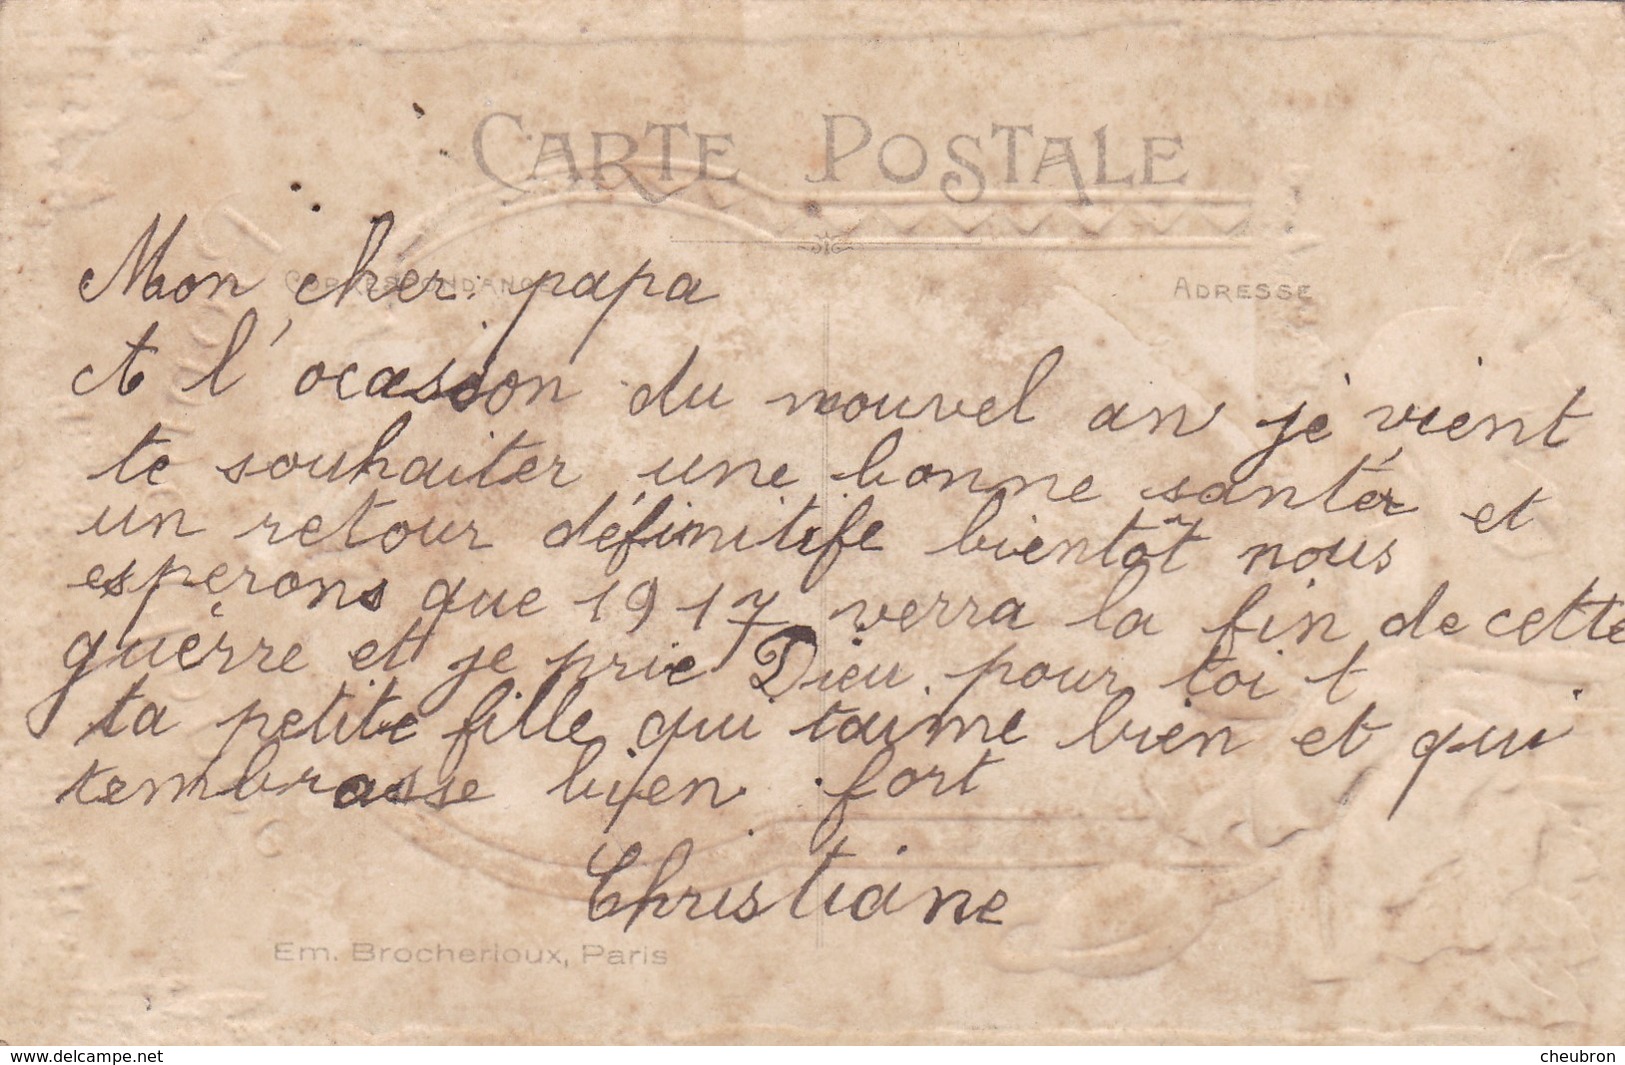 CARTE POSTALE
CORRESPONDANCE
ADRESSE
Mon cher papa
A l'ocasion du nouvel an je vient
te souhaiter une bonne santér et
un retour définitife bientôt nous
esperons que 1917 verra la fin de cette
guèrre et je prie Dieu pour toi t
ta petite fille qui taime bien et qui
tembrasse bien fort
Christiane
Em. Brocherioux, Paris
www.delcampe.net
cheubron